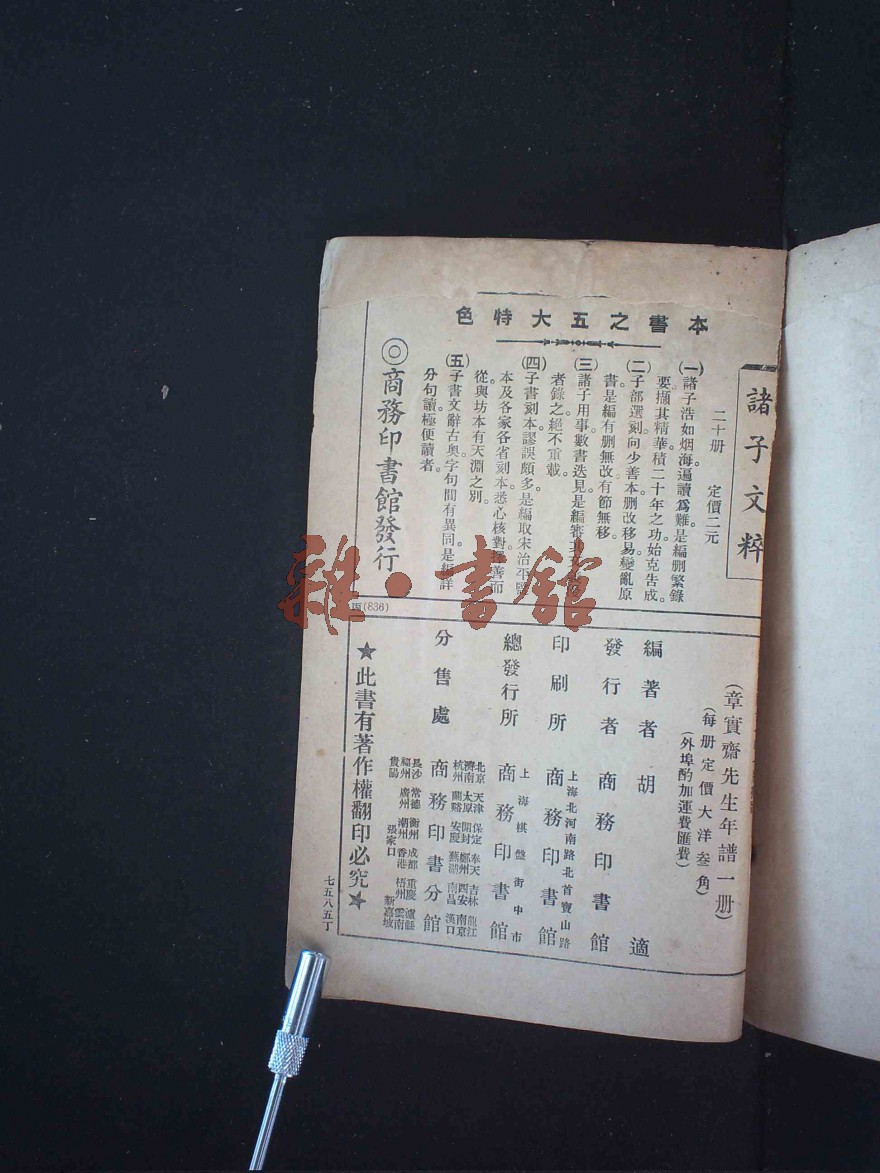 諸子文粹
二十册　定價二元
本書之五大特色
(一)諸子浩如烟海。遍讀爲難。是編删繁錄
要。擷其精華。積二十年之功。始克告成。
(二)子部選刻。向少善本。删改移易。變亂原
書。是編有删無改。有節無移。
(三)諸子用事。數書迭見。是編審其
者錄之。絕不重載。
(四)子書刻本。謬誤頗多。是編取宋治平監
本及各家各省刻本。悉心核對。擇善而
從。與坊本有天淵之別。
(五)子書文辭古奧。字句間有異同。是編詳
分句讀。極便讀者。
◎商務印書館發行
(836)
(章實齋先生年譜一册)
(每册定價大洋叁角)
(外埠酌加運費匯費)
編著者　胡適
發行者　商務印書館
上海北河南路北首寶山路
印刷所　商務印書館
上海棋盤街中市
總發行所　商務印書館
分售處　商務印書分館
北京　天津　保定　奉天　吉林　龍江
濟南　太原　開封　鄭州　西安　南京
杭州　蘭谿　安慶　蕪湖　南昌　漢口
長沙　常德　衡州　成都　重慶　瀘縣
福州　廣州　潮州　香港　梧州　雲南
貴陽　張家口　新嘉坡
★此書有著作權翻印必究★
七五八五丁
雜·書館